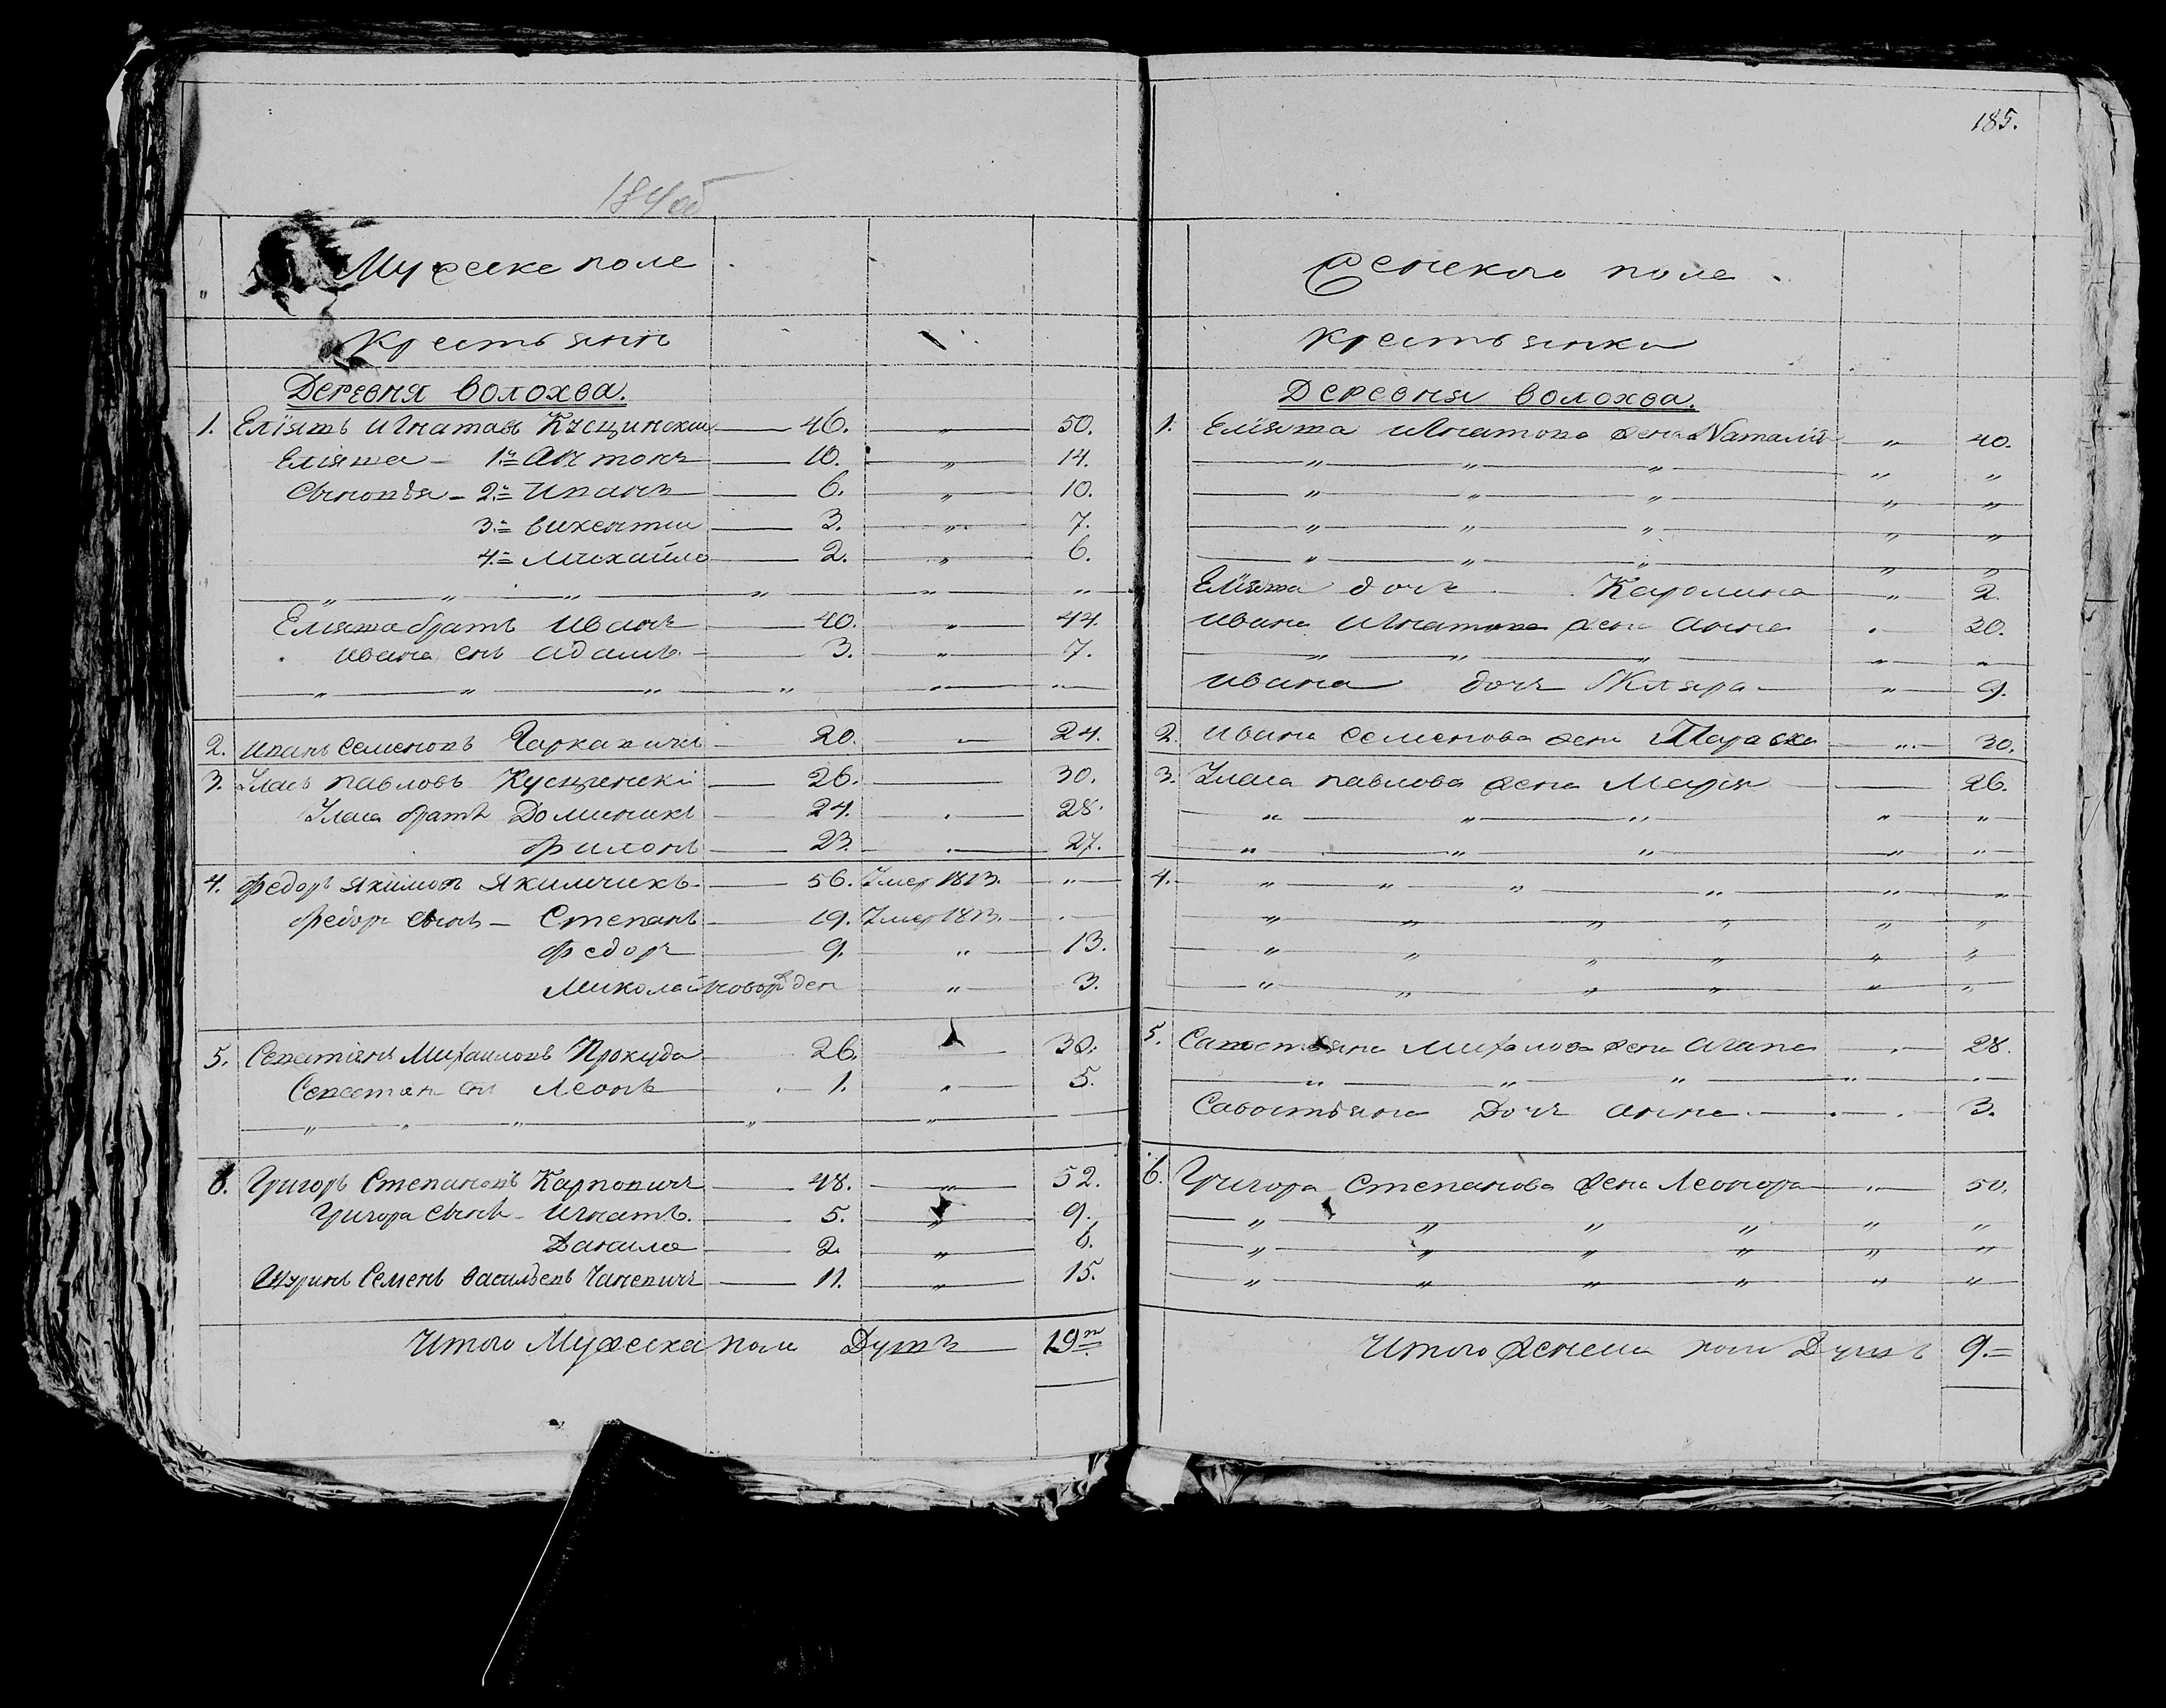 184об
Мужеске поле
Крестьянъ
Деревня Волохва.
1. Еліяшъ Игнатавъ Кусцинский 46. „ 50.
Еліяша 1й Антонъ 10. „ 14.
Сыновья 2й Иванъ 6. „ 10.
3й Викентий 3. „ 7.
4й Михайло 2. „ 6.
„ „ „ „ „ „
Еліяша братъ Иванъ 40. „ 44.
Ивана снъ Адамъ 3. „ 7.
„ „ „ „ „ „
2. Иванъ Семеновъ Чаркавичъ 20. „ 24.
3. Улась Павловъ Кусценскі 26. 30.
Уласа братъ Доминикъ 24. 28.
Филонъ 23. 27.
4. Федоръ Якимовъ Якимчикъ 56. Умер 1813. „
Федора сынъ Степанъ 19. Умер 1813.
Федоръ 9. „ 13.
Миколай новорожден „ 3.
5. Севастіянъ Михаиловъ Прокуда 26. 30.
Севастян снъ Леонъ 1. „ 5.
„ „ „ „ „
6. Григоръ Степановъ Карповичъ 48. „ 52.
Григора сынъ Игнатъ 5. „ 9.
Данило 2. „ 6.
Шуринъ Семенъ Васильевъ Чаневичъ 11. „ 15.
Итого Мужеска пола Душъ 19.
185.
Женского поле
Крестьянка
Деревня Волохва.
1. Еліяша Игнатова жена Nаталія „ 40.
„ „ „ „ „
„ „ „ „ „
„ „ „ „ „
„ „ „ „ „
Еліяша дочь Каролина „ 2.
Ивана Игнатова жена Анна 30.
„ „ „ „ „
Ивана дочь Кляра „ 9.
2. Ивана Семенова жена Параска „ 30.
3. Уласа Павлова жена Марія 26.
„ „ „ „ „
„ „ „ „ „
4. „ „ „ „ „ „
„ „ „ „ „ „
„ „ „ „ „ „
„ „ „ „ „ „
5. Савостьяна Михалова жена Агапа 28.
„ „ „ „
Савостьяна Дочь Анна 3.
6. Григора Степанова жена Леонора „ 50.
„ „ „ „ „ „
„ „ „ „ „ „
„ „ „ „ „ „
Итого женска пола Душъ 9.